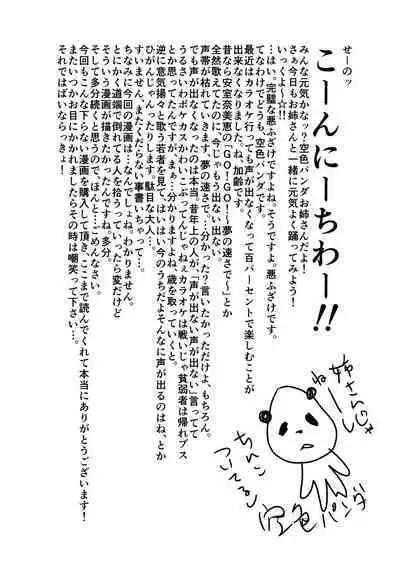 せーのッ
こーんにーちわー!!
みんな元気かなッ?空色パンダお姉さんだよ!
さぁ今日もお姉さんと一緒に元気よく踊ってみよう!
いっくよ〜☆!!
…はい。完璧な悪ふざけですよね。そうですよ。悪ふざけです。
てなわけでどうも、空色パンダです。
最近はカラオケ行っても声が出なくなって百パーセントで楽しむことが
出来なくなりましたね、加齢です。
昔なら安室奈美恵の「GO!GO!〜夢の速さで〜」とか
全然歌えてたのに、今じゃもう出ない。
声帯が枯れていきます。夢の速さで。…分かった?言いたかっただけよ、もちろん。
でも声が出なくなったのは本当。昔年上の人が、「声が出ない声が出ない」言ってて
うるさいわボケカスかわいこぶってんじゃねぇカラオケは戦いじゃ貧弱者は帰れブス
とか思ってたんですが、まぁ…分かりますよね、歳を取っていくと。
逆に意気揚々と歌う若者を見て、はいはい今のうちだよそんなに声が出るのはね、とか
ひがんじゃったりします。駄目な大人…
すいません、またくだらない事書いちゃって…。
ちなみに今回の漫画は…なんでしょね。わかりません。
とにかく道端で倒れてる人を拾うっていったら変だけど
そういう漫画が描きたかったんですね。多分。
そして多分続くと思うので、ほんと…ごめんなさい。
今回もこんな下らない漫画を購入して頂き、ここまで読んでくれて本当にありがとうございます!
またいつかお目にかかれましたらその時は嘲笑って下さい…。
それではいならっきょ!
姉さん♡
ね〜し
ちんこ
ついてるし
空色パンダ